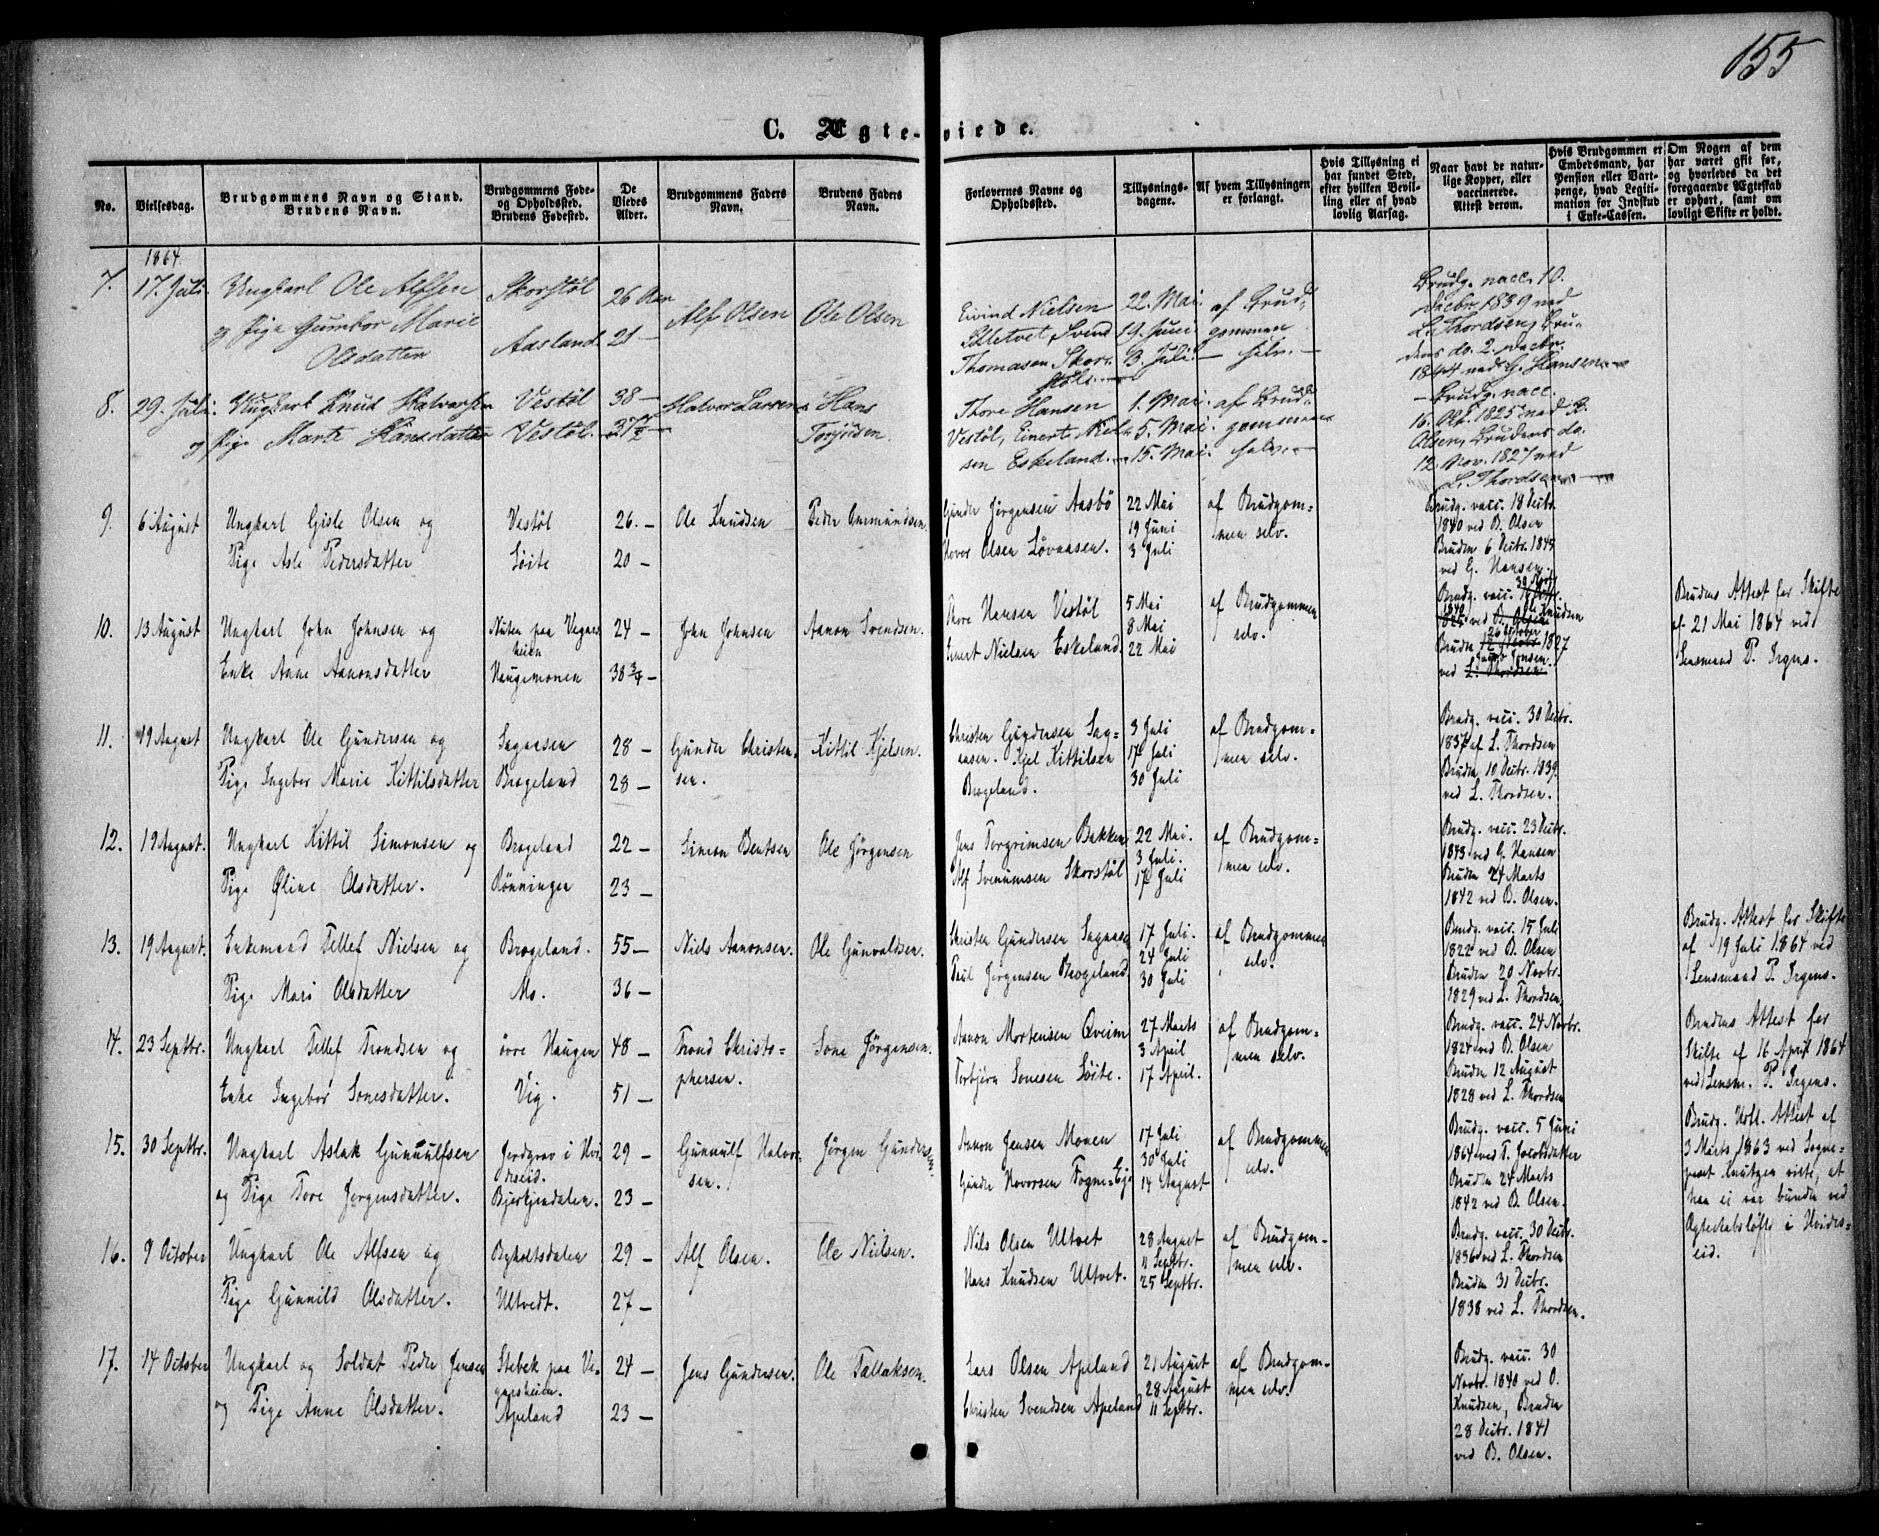 155
C. Ægte-viede.
No.
Vielsesdag.
Brudgommens Navn og Stand.
Brudens Navn.
Brudgommens Føde-
og Opholdssted.
Brudens Fødested.
De
Viedes
Alder.
Brudgommens Faders
Navn.
Brudens Faders
Navn.
Forlovernes Navne og
Opholdssted.
Tillysnings-
dagene.
Af hvem Tillysningen
er forlangt.
Hvis Tillysning ei
har fundet Sted,
efter hvilken Bevil-
ling eller af hvad
lovlig Aarsag.
Naar havt de natur-
lige Kopper, eller
vaccinerede.
Attest derom.
Hvis Brudgommen er
Embedsmand, har
Pension eller Vart-
penge, hvad Legiti-
mation for Indskud
i Enke-Cassen.
Om Nogen af dem
har været gift før,
og hvorledes da det
foregaaende Ægteskab
er ophørt, samt om
lovligt Skifte er holdt.
1864
7. 17. Juli. Ungkarl Ole Alfsen Skorstøl 26 Aar Alf Olsen Ole Olsen
og Pige Gumbor Marie Aasland 21 —
Olsdatter
Eivind Nielsen 22. Mai. af Brud-
Ulltvet Svend 19. Juni gommen
Thomasen Skor- 3. Juli. — selv. —
støl. —
Brudg. vacc. 10.
Decbr 1839 ved
L. Thordsen, Bru-
dens do. 2. Decbr.
1844 ved G. Hansen. —
8. 29. Juli. Ungkarl Knud Halvorsen Vestøl 38 — Halvor Larsen Hans
og Pige Marte Hansdatter Vestøl. 37½ — Torjusen.
Thore Hansen 1. Mai. af Brud-
Vestøl, Einert Niel- 5. Mai. gommen
sen Eskeland. — 15. Mai. selv. —
— Brudg. vacc.
16. Okt. 1825 ved B.
Olsen, Brudens do.
12. Nov. 1827 ved
L. Thordsen. —
9. 6 August Ungkarl Gisle Olsen og Vestøl 26. — Ole Knudsen Peder Ommundsen.
Pige Asle Pedersdatter Søite 20 —
Gunder Jørgensen Aasbø 22 Mai af Brudgom=
19 Juni men selv.
Hover Olsen Løvaasen. 3 Juli
Brudg. vacc. 18 Decbr.
1840 ved B. Olsen
Bruden 6 Decbr. 1845
ved G. Hansen.
10. 13 August Ungkarl John Johnsen og Nuten paa Vegars 24 — John Johnsen Aanon Svendsen.
heien
Enke Anne Aanonsdatter Haugemonen 38 3/4 —
Thore Hansen Vestøl 5 Mai af Brudgommen
8 Mai selv.
Einert Nielsen Eskeland 22 Mai
Brudg. vacc. 30 Novbr.
1840 ved O. Knudsen
Bruden 26 October 1827
ved Jacob Jensen.
Brudens Attest for Skifte
af 21 Mai 1864 ved
Lensmand P. Irgens.
11. 19 August Ungkarl Ole Gundersen og Sagaasen 28 — Gunder Christen- Kittil Kjelsen.
Pige Ingebor Marie Kittilsdatter Brogeland 28 — sen.
Christen Gundersen Sag= 3 Juli af Brudgom=
aasen. Kjel Kittilsen 17 Juli men selv.
Brogeland. 30 Juli
Brudg. vacc. 30 Decbr.
1837 af L. Thordsen
Bruden 10 Decbr. 1839.
ved L. Thordsen.
12. 19 August. Ungkarl Kittil Simonsen og Brogeland 22 — Simon Bentsen Ole Jørgensen
Pige Oline Olsdatter. Rönningen 23 —
Jens Torgrimsen Bakken 22 Mai. af Brudgom=
3 Juli. men selv.
Alf Svenumsen Skorstøl 17 Juli
Brudg. vacc. 23 Decbr.
1843 ved G. Hansen
Bruden 24 Marts
1842 ved B. Olsen.
13. 19 August. Enkemand Tellef Nielsen og Brogeland. 55 — Niels Aanonsen. Ole Gunvaldsen.
Pige Mari Olsdatter Mo. 36 —
Christen Gundersen Sagaasen 17 Juli. af Brudgommen
24 Juli selv.
Paul Jørgensen Brogeland 30 Juli
Brudg. vacc. 15 Juli
1822 ved B. Olsen
Bruden 20 Novbr.
1829 ved L. Thordsen
Brudg. Attest for Skifte
af 19 Juli 1864 ved
Lensmand P. Irgens.
14. 23 Septbr. Ungkarl Tellef Trondsen og övre Haugen 48 — Trond Christo= Sone Jørgensen.
Enke Ingebor Sonesdatter. Vig. 51 — phersen.
Aanon Mortensen Qveim 27 Marts af Brudgom=
3 April men selv.
Torbjørn Sonesen Søite. 17 April.
Brudg. vacc. 24 Novbr.
1824 ved B. Olsen
Bruden 12 August
1828 ved L. Thordsen
Brudens Attest for
Skifte af 16 April 1864
ved Lensm. P. Irgens.
15. 30 Septbr. Ungkarl Aslak Gunnulfsen Jordgrav i Hvi 29 — Gunnulf Halvor Jørgen Gundersen
deseid.
og Pige Tore Jørgensdatter. Bjørkjendalen. 23 — sen.
Aanon Jensen Monen 17 Juli af Brudgommen
30 Juli selv.
Gunder Hoversen Fogne=Eje 14 August
Brudg. vacc. 5 Juni
1864 ved T. Jacobsdatter
Bruden 24 Marts
1842 ved B. Olsen.
Brudg. Attest af
3 Marts 1863 ved Sogne-
præst Knutzen viste, at
han ei var bunden ved
Ægteskabsløfte i Hvides=
eid.
16. 9 October Ungkarl Ole Alfsen og Bykoltsdalen 29 — Alf Olsen. Ole Nielsen.
Pige Gunnild Olsdatter. Ultvedt. 27 —
Nils Olsen Ultvet 28 August af Brudgom-
11 Septbr. men selv.
Hans Knudsen Ultvet. 25 Septbr.
Brudg. vacc. 30 Decbr.
1836 ved L. Thordsen
Bruden 31 Decbr.
1838 ved L. Thordsen.
17. 14 October Ungkarl og Soldat Peder Jensen Stebek paa Ve- 24 — Jens Gundersen. Ole Tallaksen.
garsheien.
og Pige Anne Olsdatter. Apeland 23 —
Lars Olsen Apeland 21 August af Brudgom-
28 August men selv.
Christen Svendsen Apeland 11 Septbr.
Brudg. vacc. 30
Novbr. 1840 ved O.
Knudsen, Bruden
28 Decbr. 1841
ved B. Olsen.